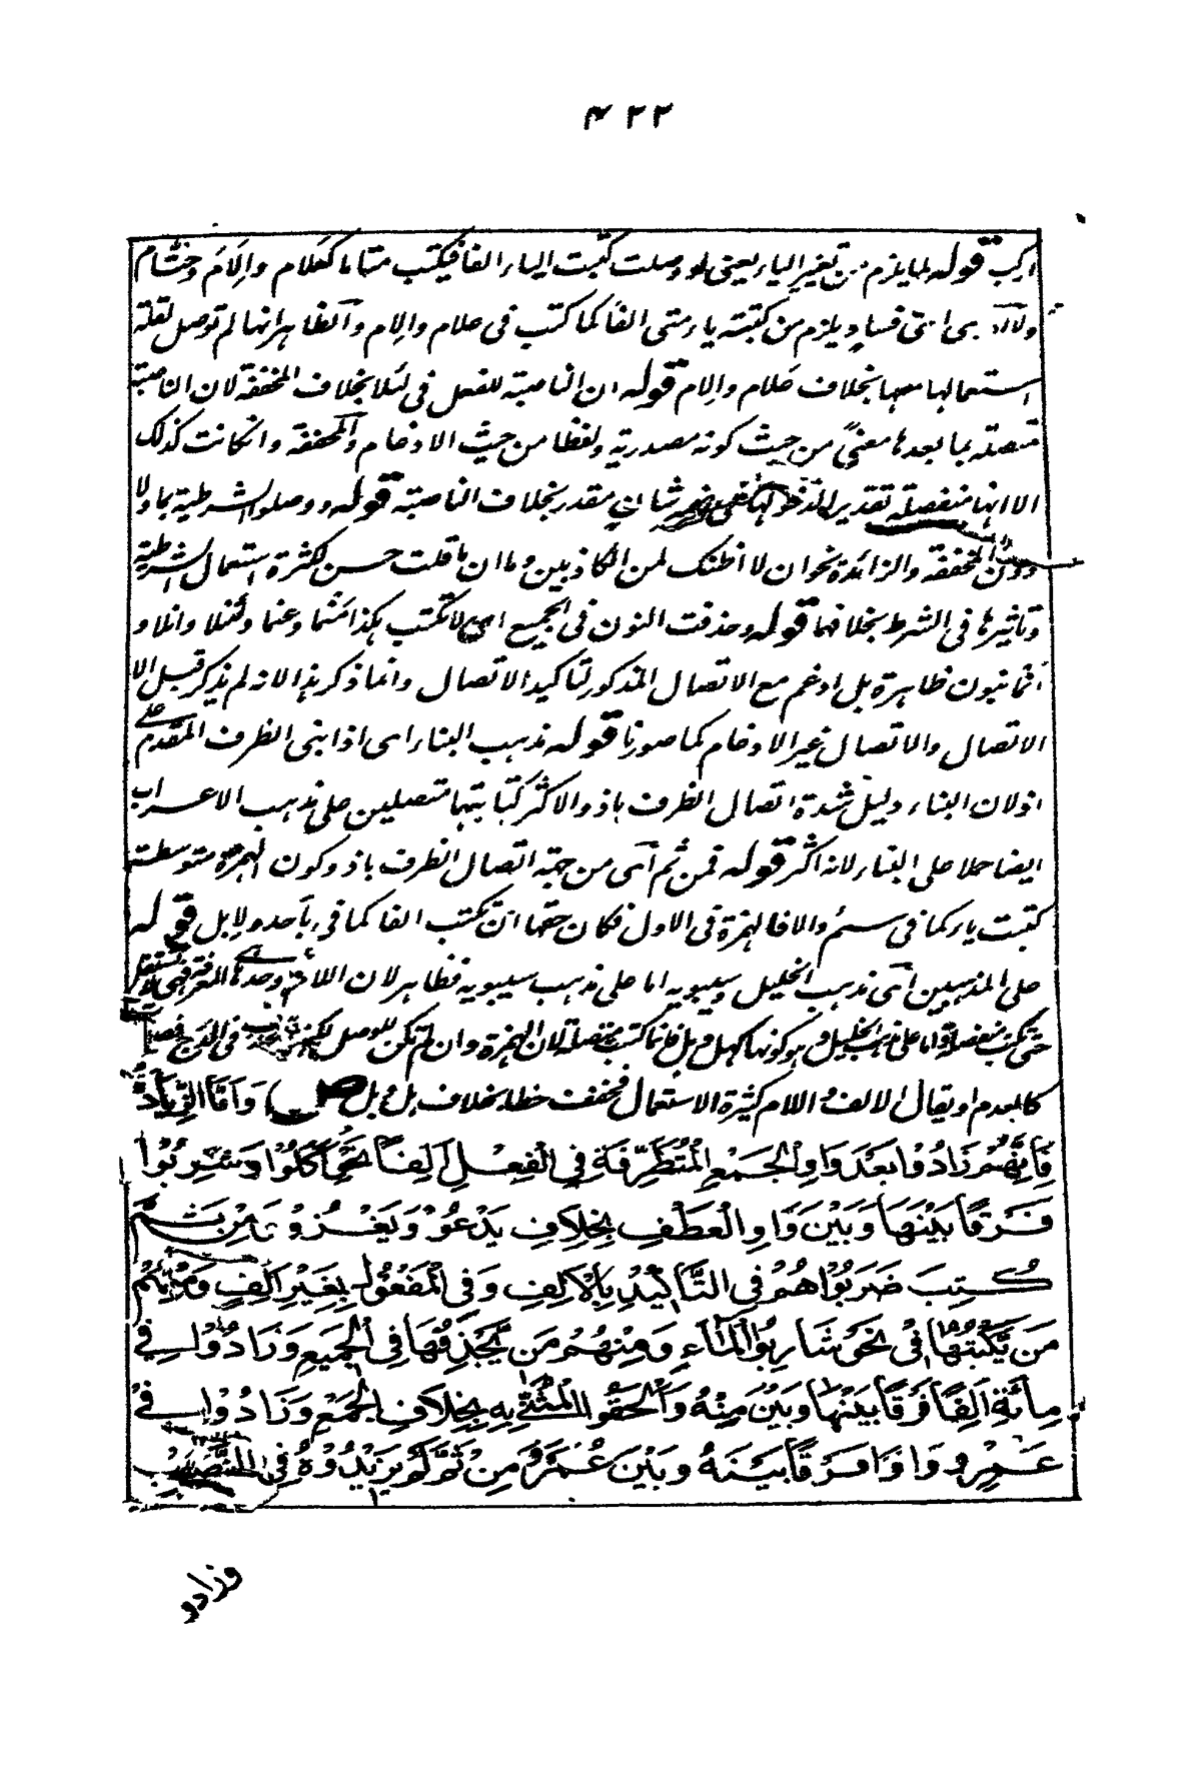 ٤٢٢
اكب قوله لما يلزم من تغير الياء يعنى لو وصلت كتبت الياء الفا فيكتب متاما كعلام والام وحتام
ى فساد ويلزم من كتبته ياء متى الفا كما كتب فى علام والام والظاهر انها لم توصل لقلة
استعمالها معها بخلاف علام والام قوله ان الناصبة للفعل فى لئلا بخلاف المخففة لان الناصبة
متصلة بما بعدها معنى من حيث كونه مصدرية ولفظا من حيث الادغام والمخففة وان كانت كذلك
الا انها منفصلة تقديرا شان مقدر بخلاف الناصبة قوله ووصلوا الشرطية بما ولا
دون المخففة والزائدة نحو ان لا اظنك لمن الكاذبين وما ان ما قلت حسن لكثرة استعمال الشرطية
وتاثيرها فى الشرط بخلافهما قوله وحذفت النون فى الجميع اى لا تكتب هكذا مثما وعنما ولئنلا وانلا و
انما بنون ظاهرة بل ادغم مع الاتصال المذكور لتاكيد الاتصال وانما ذكر هذا لانه لم يذكر قبل الا
الاتصال والاتصال غير الادغام كما صورنا قوله مذهب البناء اى اذا بنى الظرف المقدم على
اذ لان البناء دليل شدة اتصال الظرف باذ والاكثر كتابتهما متصلين على مذهب الاعراب
ايضا حملا على البناء لانه اكثر قوله فمن ثم اى من جهة اتصال الظرف باذ وكون الهمزة متوسطة
كتبت ياء كما فى سئم والا فالهمزة فى الاول فكان حقها ان تكتب الفا كما فى باحد ولابل قوله
على المذهبين اى مذهب الخليل وسيبويه اما على مذهب سيبويه فظاهر لان اللام وحدها هى المعرفة فهى لا تستقل
حتى تكتب منفصلة واما على مذهب الخليل وهو كونها كهل وبل فانما كتبت متصلة لان الهمزة وان لم تكن للوصل فى الدرج
كالعدم او يقال الالف واللام كثيرة الاستعمال فخففت خطا بخلاف هل وبل ص وَاَمَّا الزِّيَادَةُ
فَاِنَّهُمْ زَادُوْا بَعْدَ وَاوِ الْجَمْعِ الْمُتَطَرِّفَةِ فِي الْفِعْلِ اَلِفًا نَحْوُ اَكَلُوْا وَشَرِبُوْا
فَرْقًا بَيْنَهَا وَبَيْنَ وَاوِ الْعَطْفِ بِخِلَافِ يَدْعُوْ وَيَغْزُوْ وَمِنْ ثَمَّ
كُتِبَ ضَرَبُوْا هُمْ فِي التَّاْكِيْدِ بِاَلِفٍ وَفِي الْمَفْعُوْلِ بِغَيْرِ اَلِفٍ وَمِنْهُمْ
مَنْ يَّكْتُبُهَا فِيْ نَحْوِ شَارِبُوا الْمَاءِ وَمِنْهُمْ مَنْ يَّحْذِفُهَا فِي الْجَمِيْعِ وَزَادُوْا فِيْ
مِائَةٍ اَلِفًا فَرْقًا بَيْنَهَا وَبَيْنَ مِنْهُ وَاَلْحَقُوا الْمُثَنّٰى بِهِ بِخِلَافِ الْجَمْعِ وَزَادُوْا فِيْ
عَمْرٍو وَاوًا فَرْقًا بَيْنَهُ وَبَيْنَ عُمَرَ وَمِنْ ثَمَّ لَمْ يَزِيْدُوْهُ فِي النَّصَبِ
وزادو